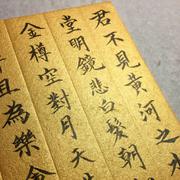 君不見黃河之水
堂明鏡悲白髮朝
金樽空對月天
且為樂會